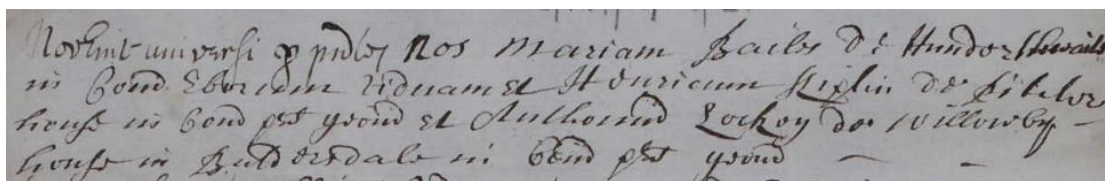 Noverint universi p pntes nos Mariam Bailes de Hunderthwaite
in Com Eborum viduam et Henricum Kiplin de
house in Com pred yeom et Anthoniu Lockey de Willowby
house in Balderdale in Com pred yeom